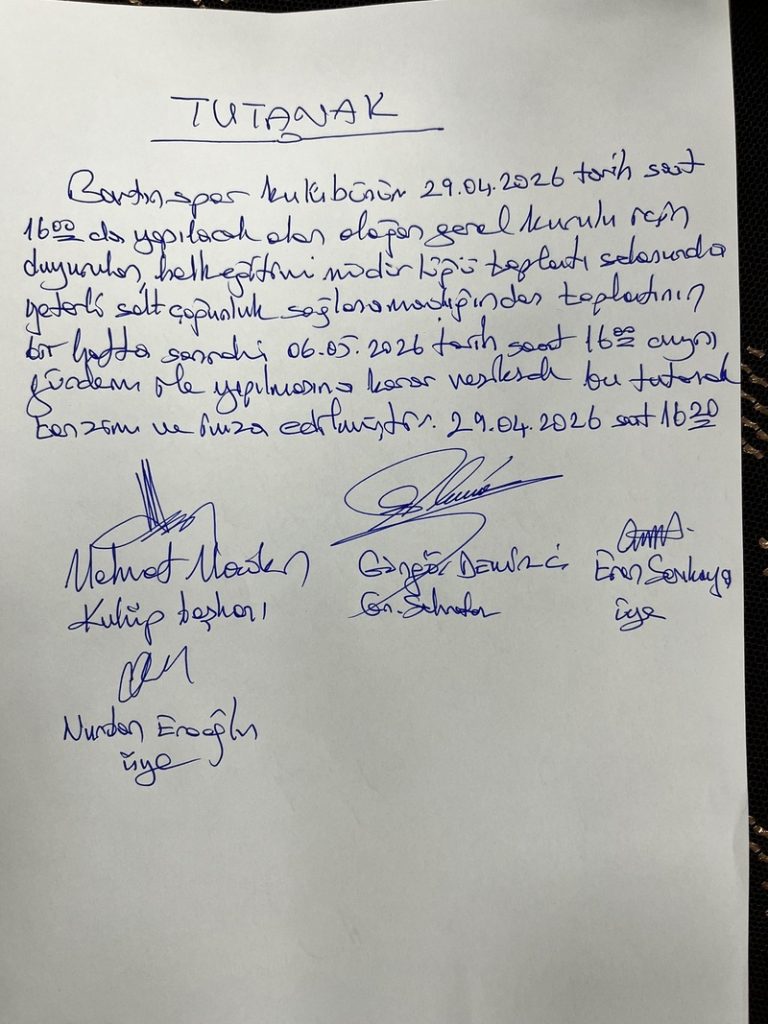 TUTANAK
Bartınspor kulübünün 29.04.2026 tarih saat
16⁰⁰ da yapılacak olan olağan genel kurulu için
duyurulan, halk eğitimi müdürlüğü toplantı salonunda
yeterli salt çoğunluk sağlanamadığından toplantının
bir hafta sonraki 06.05.2026 tarih saat 16⁰⁰ aynı
gündem ile yapılmasına karar verilerek bu tutanak
tanzim ve imza edilmiştir. 29.04.2026 saat 16²⁰
Mehmet Güngör Demirci Eren Sarıkaya
Kulüp başkanı Gn. Sekreter üye
Nurdan Eroğlu
üye